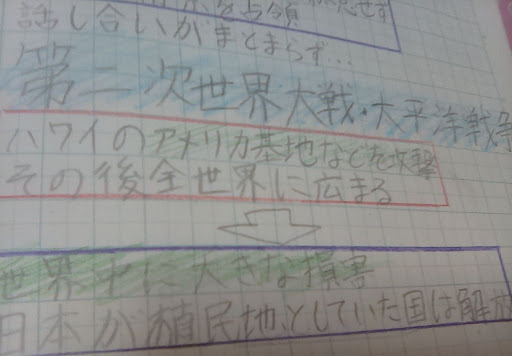 を占領
話し合いがまとまらず…
第二次世界大戦・太平洋戦争
ハワイのアメリカ基地などを攻撃
その後全世界に広まる
世界中に大きな損害
日本が植民地としていた国は解放